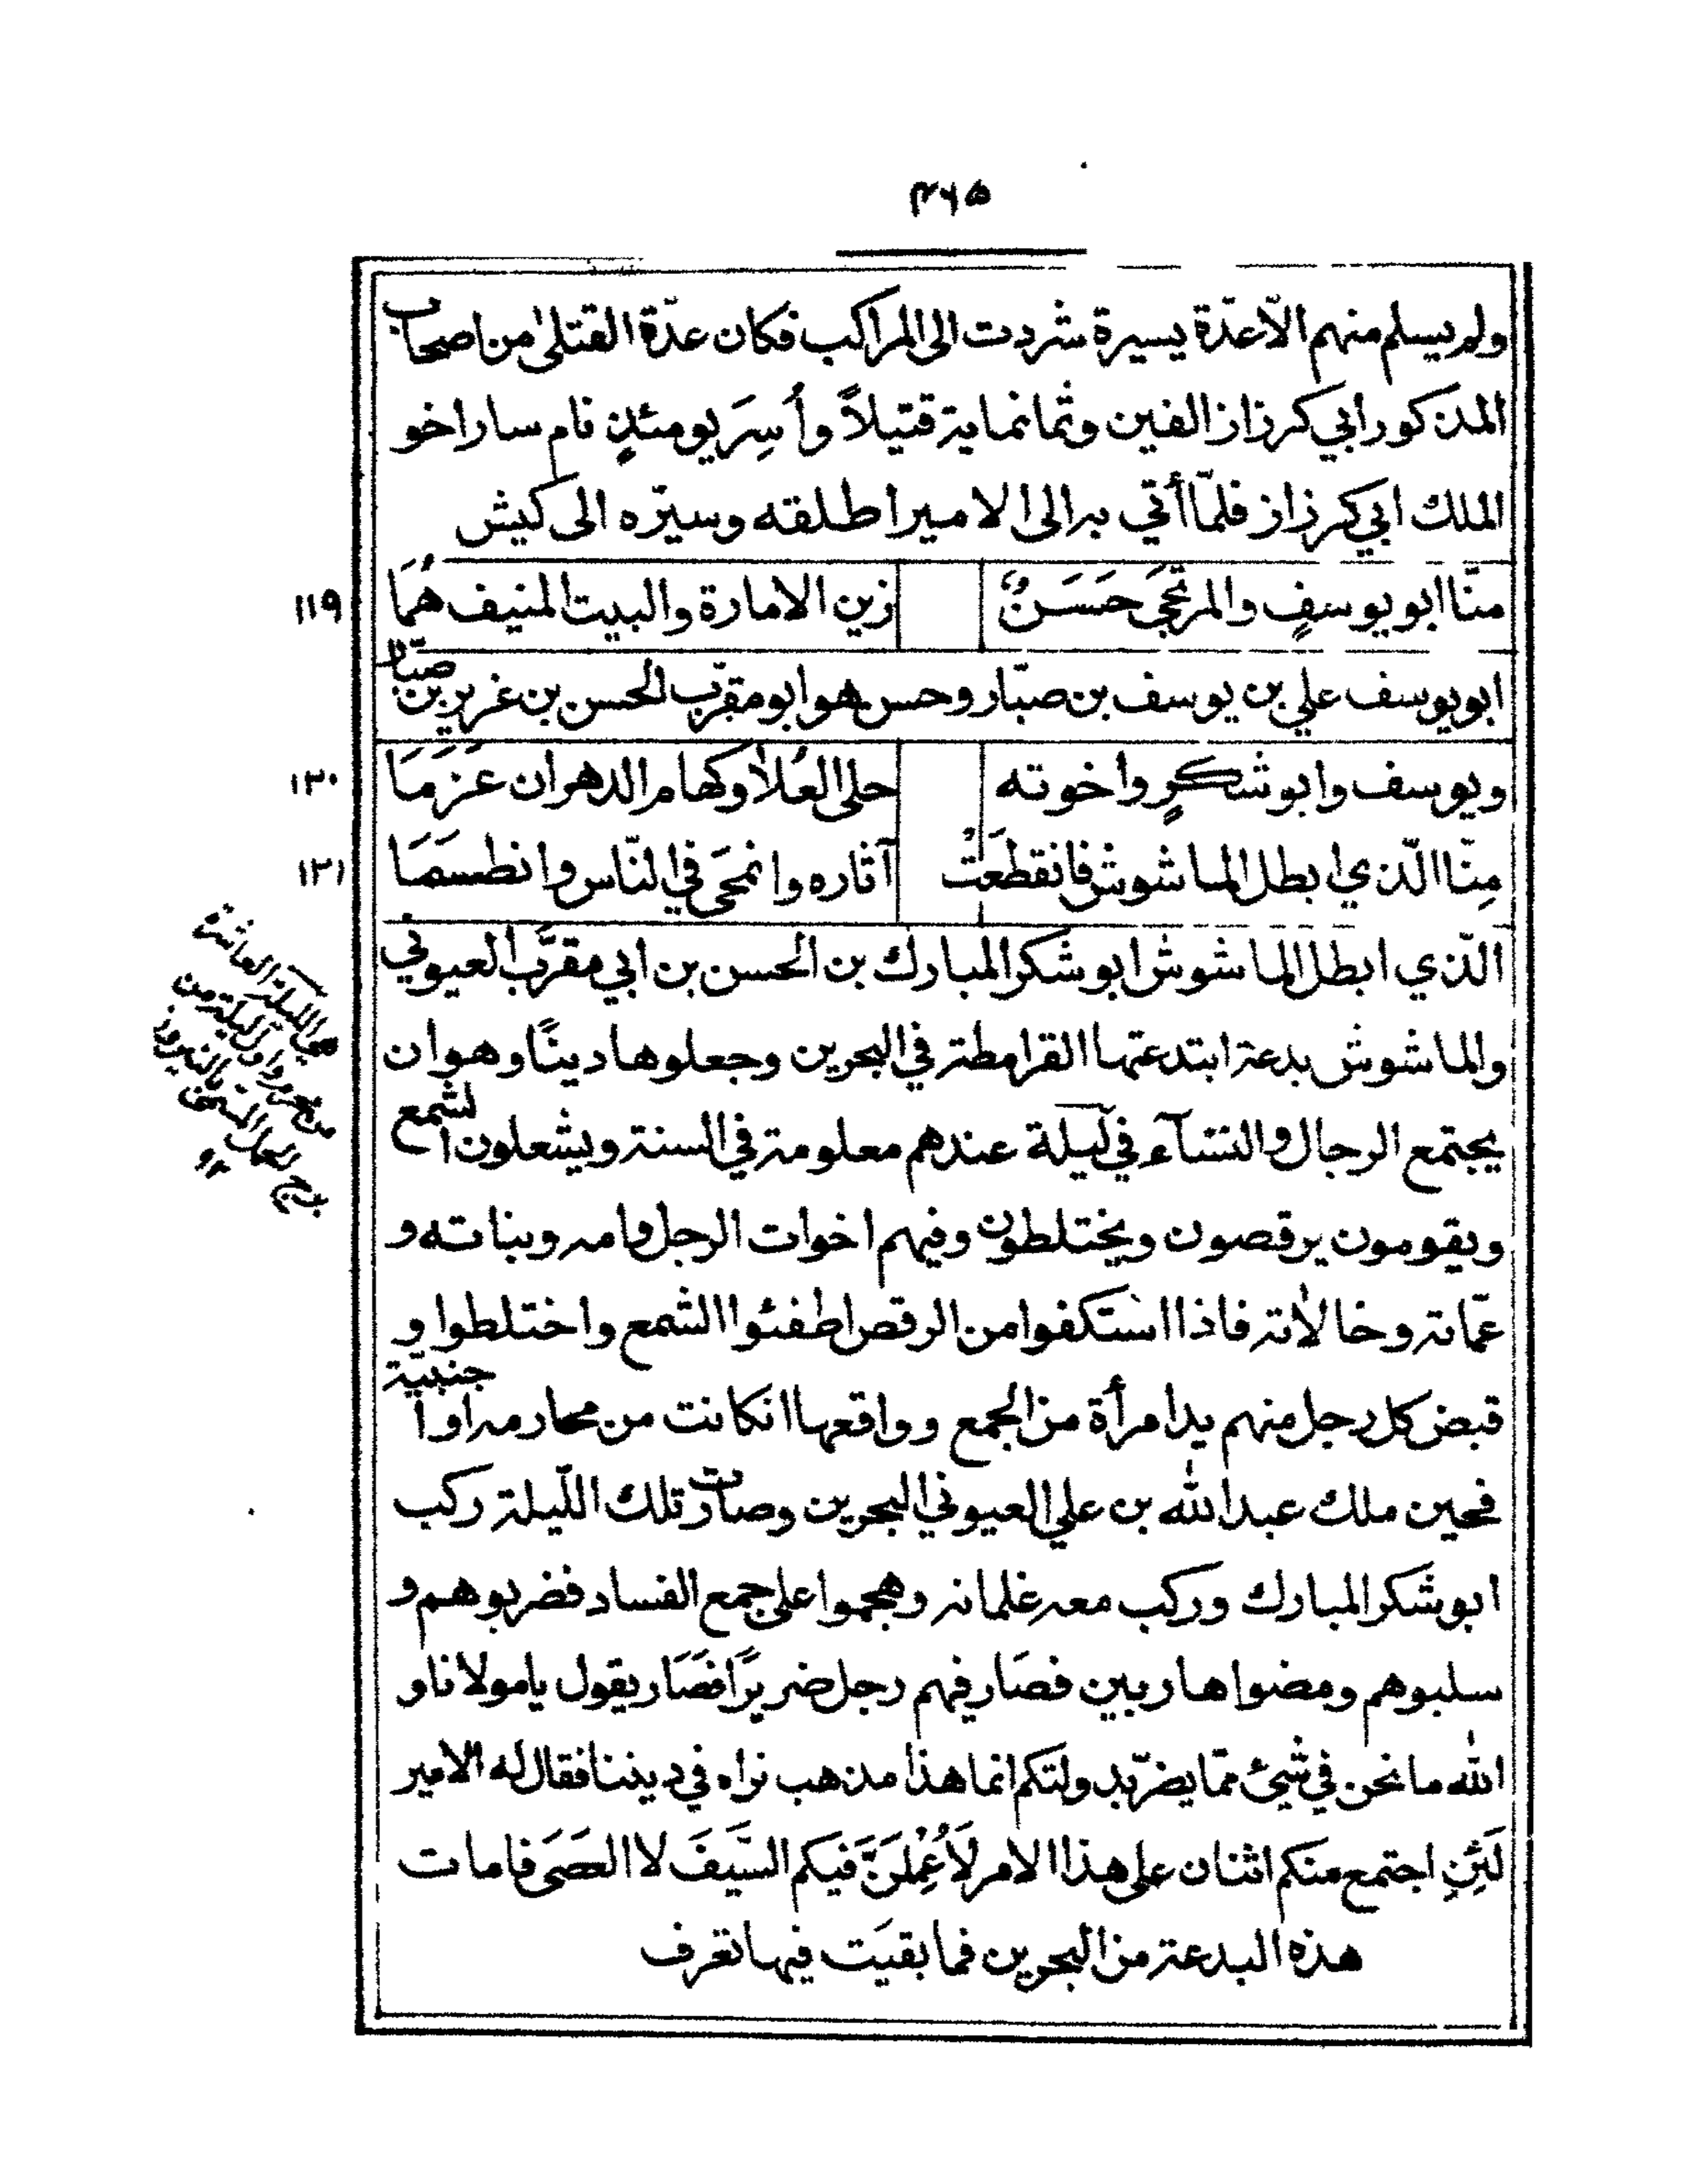 ۴۶۵
ولم يسلم منهم الّا عدّة يسيرة شردت الى المراكب فكان عدّة القتلىٰ من اصحاب
المذكور ابي كرزاز الفين وثمانماية قتيلاً وأُسِرَ يومئذٍ نام سار اخو
الملك ابي كرزاز فلمّا أتي به الى الامير اطلقه وسيّره الى كيش
منّا ابو يوسفٍ والمرتجىَ حَسَنٌ زين الامارة والبيت المنيف هُمَا ١١٩
ابو يوسف علي بن يوسف بن صبّار وحسن هو ابو مقرّب الحسن بن غرير بن صبّار
ويوسف وابو شكرٍ واخوته حلى العُلا وكهام الدهر ان عَزَمَا ١٣٠
مِنّا الّذي ابطل الماشوش فانقطعَتْ آثاره وانمحَى في النّاس وانطسَمَا ١٣١
الّذي ابطل الماشوش ابو شكر المبارك بن الحسن بن ابي مقرَّب العيوني
والماشوش بدعة ابتدعتها القرامطة في البحرين وجعلوها دينًا وهو ان
يجتمع الرجال والنسآء في ليلة عندهم معلومة في السنة ويشعلون الشمع
ويقومون يرقصون ويختلطون وفيهم اخوات الرجل وامه وبناته و
عمّاته وخالاته فاذا استكفوا من الرقص اطفئوا الشمع واختلطوا و
قبض كل رجل منهم يد امرأة من الجمع وواقعها انكانت من محارمه او اجنبيّة
فحين ملك عبدالله بن علي العيوني البحرين وصارت تلك اللّيلة ركب
ابو شكر المبارك وركب معه غلمانه وهجموا على جمع الفساد فضربوهم و
سلبوهم ومضوا هاربين فصَار فيهم رجل ضريرًا فصَار يقول يا مولانا و
الله ما نحن في شيئ ممّا يضرّ بدولتكم انما هذا مذهب نراه في ديننا فقال له الامير
لَئِنِ اجتمع منكم اثنان على هذا الامر لَأُعْمِلَنَّ فيكم السَّيفَ لا العصَى فاماتت
هذه البدعة من البحرين فما بقيَت فيها تعرف
هي الليلة العاشرة